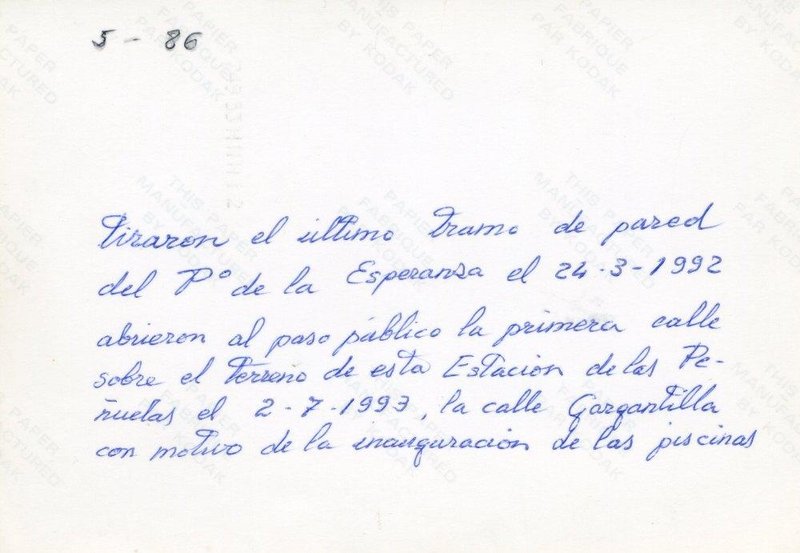 5 - 86
tiraron el último tramo de pared
del Pº de la Esperanza el 24-3-1992
abrieron al paso público la primera calle
sobre el terreno de esta Estación de las Pe-
ñuelas el 2-7-1993, la calle Gargantilla
con motivo de la inauguración de las piscinas
THIS PAPER
MANUFACTURED
BY KODAK
PAPIER
FABRIQUE
PAR KODAK